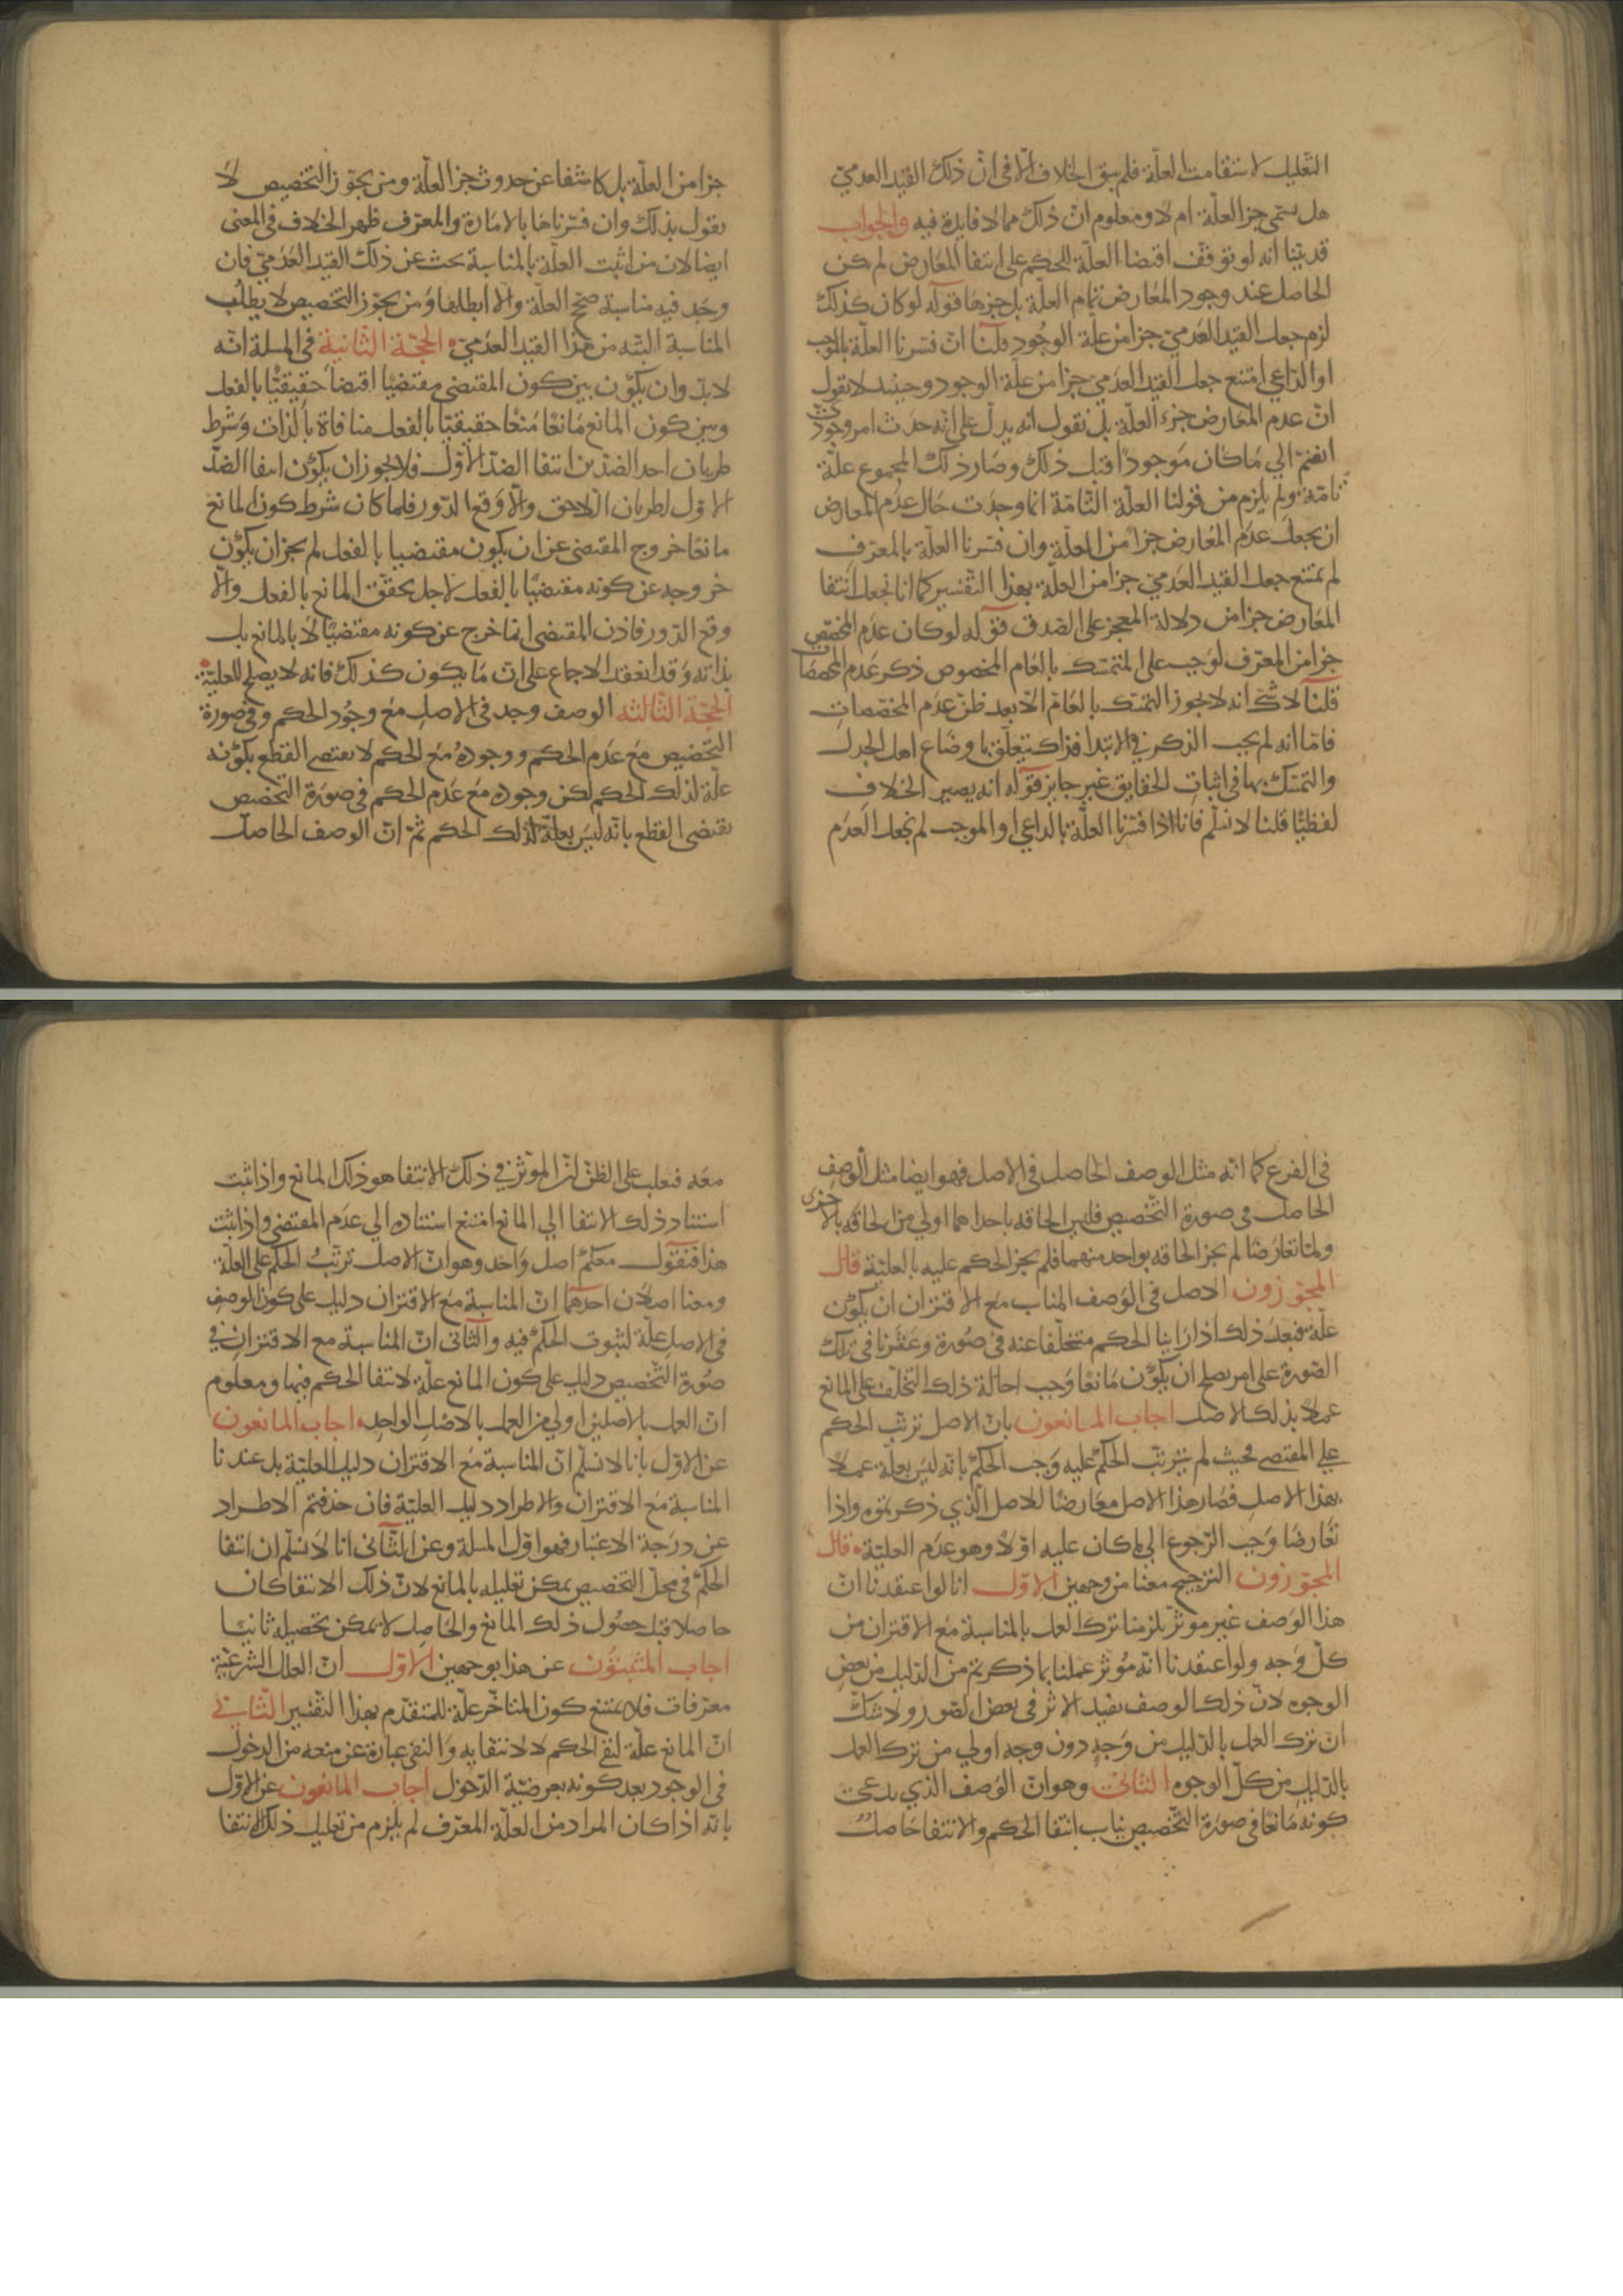 التعليل لاستقامت العلّة فلم يبق الخلاف الّا في انّ ذلك القيد العدميّ
هل يسمّى جزا العلّة ام لا ومعلوم انّ ذلك مما لا فايدة فيه والجواب
قد بيّنا انه لو توقّف اقتضا العلّة للحكم على انتفا المعارض لم يكن
الحاصل عند وجود المعارض تمام العلّة بل جزها قوله لو كان كذلك
لزم جعل القيد العدميّ جزا من علّة الوجود قلنا ان فسّرنا العلّة بالموجب
او الداعي امتنع جعل القيد العدمي جزا من علّة الوجود وحينيذ لا نقول
انّ عدم المعارض جزء العلّة بل نقول انه يدلّ على انّه حدث امر وجوديّ
انضمّ الي ما كان موجودا قبل ذلك وصار ذلك المجموع علّة
تامّة ولم يلزم من قولنا العلّة التامّة انما وجدت حال عدم المعارض
ان يجعل عدم المعارض جزا من العلّة وان فسّرنا العلّة بالمعرّف
لم يمتنع جعل القيد العدميّ جزا من العلّة بهذا التفسير كما انا نجعل انتفا
المعارض جزا من دلالة المعجز على الصدق قوله لو كان عدم المخصّص
جزا من المعرّف لوجب على المتمسّك بالعام المخصوص ذكر عدم المخصصات
قلنا لا شك انه لا يجوز التمسّك بالعامّ الّا بعد ظنّ عدم المخصّصات
فامّا انه لم يجب الذكر في الابتدا فذاك يتعلّق باوضاع اهل الجدل
والتمسّك بها في اثبات الحقايق غير جايز قوله انه يصير الخلاف
لفظيّا قلنا لا نسلّم فانا اذا فسّرنا العلّة بالداعي او الموجب لم نجعل العدم
جزا من العلّة بل كاشفا عن حدوث جزا العلّة ومن يجوّز التخصيص لا
يقول بذلك وان فسّرناها بالامارة والمعرّف ظهر الخلاف في المعنى
ايضا لان من اثبت العلّة بالمناسبة بحث عن ذلك القيد العدميّ فان
وجد فيه مناسبة صحّح العلّة والّا ابطلها ومن يجوّز التخصيص لا يطلب
المناسبة البتّه من هذا القيد العدميّ الحجّة الثانية في المسلة انّه
لابدّ وان يكون بين كون المقتضي مقتضيّا اقتضا حقيقيّا بالفعل
وبين كون المانع مانعا منعا حقيقيّا بالفعل منافاة بالذات وشرط
طريان احد الضدّين انتفا الضدّ الاوّل فلا يجوز ان يكون انتفا الضدّ
الاوّل لطريان اللاحق والّا وقع الدّور فلما كان شرط كون المانع
مانعا خروج المقتضي عن ان يكون مقتضيا بالفعل لم يجز ان يكون
خروجه عن كونه مقتضيا بالفعل لاجل تحقّق المانع بالفعل والّا
وقع الدّور فاذن المقتضي انما خرج عن كونه مقتضيّا لا بالمانع بل
بذاته وقد انعقد الاجماع على ان ما يكون كذلك فانه لا يصلح للعليّة
الحجّة الثالثه الوصف وجد في الاصل مع وجود الحكم وفي صورة
التخصيص مع عدم الحكم ووجوده مع الحكم لا يقتضي القطع بكونه
علّة لذلك الحكم لكن وجوده مع عدم الحكم في صورة التخصيص
يقتضي القطع بانّه ليس بعلّة لذلك الحكم ثمّ انّ الوصف الحاصل
في الفرع كما انّه مثل الوصف الحاصل في الاصل فهو ايضا مثل الوصف
الحاصل في صورة التخصيص فليس الحاقه باحداهما اولي من الحاقه بالاخرى
ولمّا تعارضا لم يجز الحاقه بواحد منهما فلم يجز الحكم عليه بالعليّة قال
المجوّزون الاصل في الوصف المناسب مع الاقتران ان يكون
علّة فبعد ذلك اذا راينا الحكم متخلّفا عنه في صورة وعثرنا في تلك
الصورة على امر يصلح ان يكون مانعا وجب احالة ذلك التخلّف على المانع
عملا بذلك الاصل اجاب المانعون بانّ الاصل ترتّب الحكم
علي المقتضي فحيث لم يترتّب الحكم عليه وجب الحكم بانّه ليس بعلّة عملا
بهذا الاصل فصار هذا الاصل معارضا للاصل الّذي ذكرتموه واذا
تعارضا وجب الرّجوع الي ما كان عليه اوّلا وهو عدم العليّة قال
المجوّزون الترجيح معنا من وجهين الاوّل انا لو اعتقدنا انّ
هذا الوصف غير موثّر يلزمنا ترك العمل بالمناسبة مع الاقتران من
كلّ وجه ولو اعتقدنا انّه موثّر عملنا بما ذكرتم من الدليل من بعض
الوجوه لانّ ذلك الوصف يفيد الاثر في بعض الصّور ولا شكّ
انّ ترك العمل بالدليل من وجه دون وجه اولي من ترك العمل
بالدّليل من كلّ الوجوه الثاني وهو انّ الوصف الذي يدعى
كونه مانعا في صورة التخصيص يناسب انتفا الحكم والانتفا حاصل
معه فيغلب على الظنّ انّ الموثّر في ذلك الانتفا هو ذلك المانع واذا ثبت
استناد ذلك الانتفا الي المانع امتنع استناده الي عدم المقتضي واذا ثبت
هذا فنقول معكم اصل واحد وهو انّ الاصل ترتّب الحكم على العلّة
ومعنا اصلان احدهما انّ المناسبة مع الاقتران دليل على كون الوصف
في الاصل علّة لثبوت الحكم فيه والثاني انّ المناسبة مع الاقتران في
صورة التخصيص دليل على كون المانع علّة لانتفا الحكم فيها ومعلوم
انّ العمل بالاصلين اولي من العمل بالاصل الواحد اجاب المانعون
عن الاوّل بانا لا نسلّم انّ المناسبة مع الاقتران دليل العليّة بل عندنا
المناسبة مع الاقتران والاطراد دليل العليّة فان حذفتم الاطراد
عن درجة الاعتبار فهو اوّل المسلة وعن الثاني انا لا نسلّم ان انتفا
الحكم في محلّ التخصيص يمكن تعليله بالمانع لانّ ذلك الانتفا كان
حاصلا قبل حصول ذلك المانع والحاصل لا يمكن تحصيله ثانيا
اجاب المثبتون عن هذا بوجهين الاوّل انّ العلل الشرعيّة
معرّفات فلا يمتنع كون المتاخّر علّة للمتقدّم بهذا التفسير الثاني
انّ المانع علّة لنفي الحكم لا لانتفايه والنفي عبارة عن منعه من الدخول
في الوجود بعد كونه بعرضيّة الدّخول اجاب المانعون عن الاوّل
بانّه اذا كان المراد من العلّة المعرّف لم يلزم من تعليل ذلك الانتفا